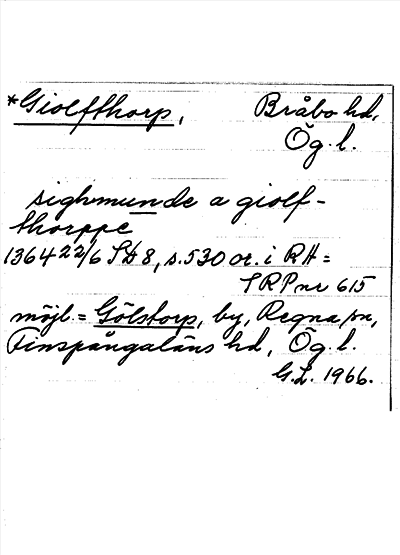 *Giolfthorp, Bråbo hd,
Ög. l.
sighmunde a giolf-
thorppe
1364 22/6 SD 8, s. 530 or. i RA =
SRP nr 615
möjl. = Gölstorp, by, Regna sn,
Finspångaläns hd, Ög. l.
G.L. 1966.